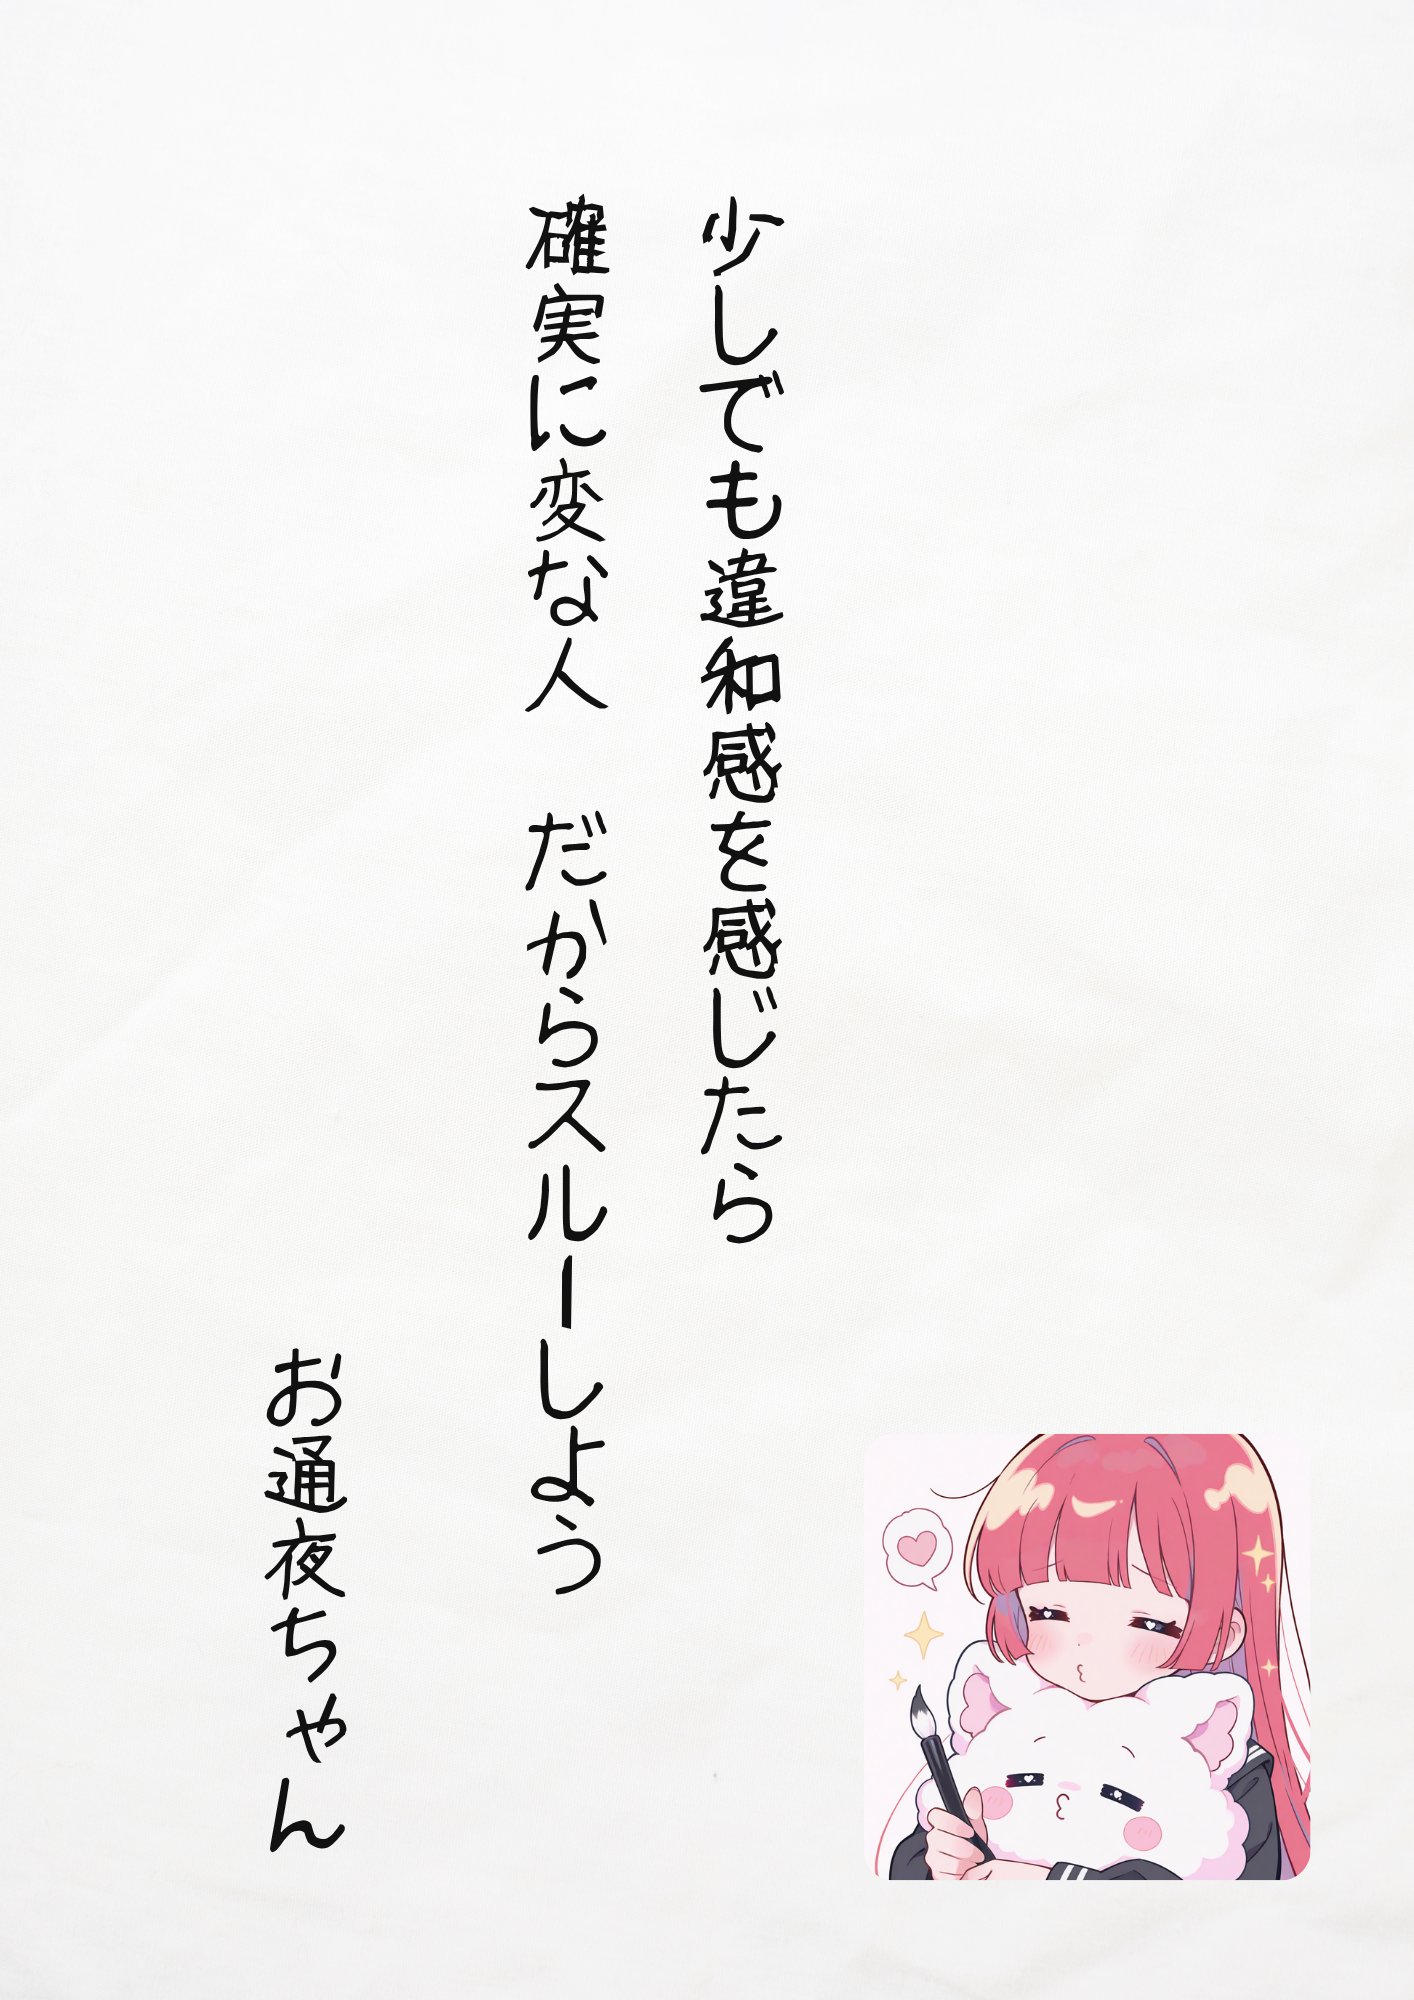 少しでも違和感を感じたら
確実に変な人　だからスルーしよう
お通夜ちゃん